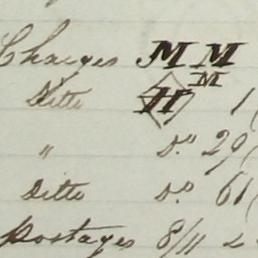 Charges M M
M
Ditto H 1
" Do. 29
Ditto Do. 61
Postages 8/11 2